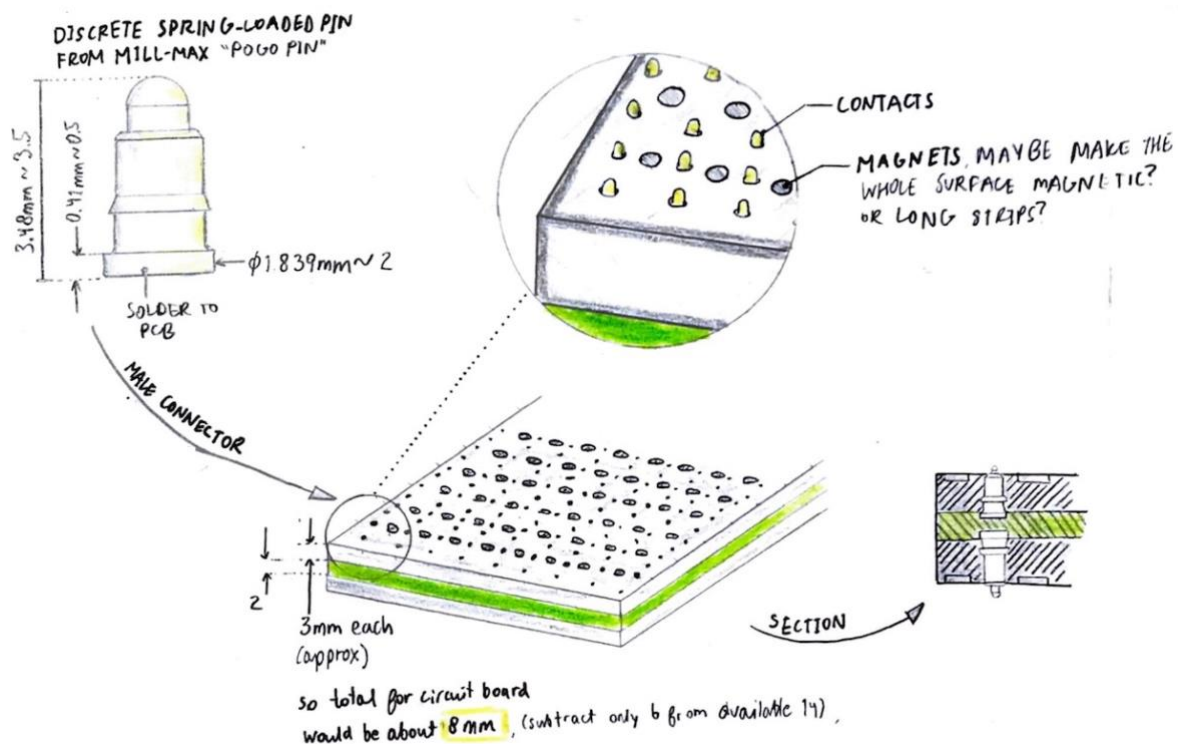 DISCRETE SPRING-LOADED PIN
FROM MILL-MAX "POGO PIN"
3.48mm ~ 3.5
0.41mm ~ 0.5
ϕ1.839mm ~ 2
SOLDER TO
PCB
CONTACTS
MAGNETS, MAYBE MAKE THE
WHOLE SURFACE MAGNETIC?
OR LONG STRIPS?
MALE CONNECTOR
2
3mm each
(approx)
SECTION
so total for circuit board
would be about 8mm, (subtract only 6 from available 14),